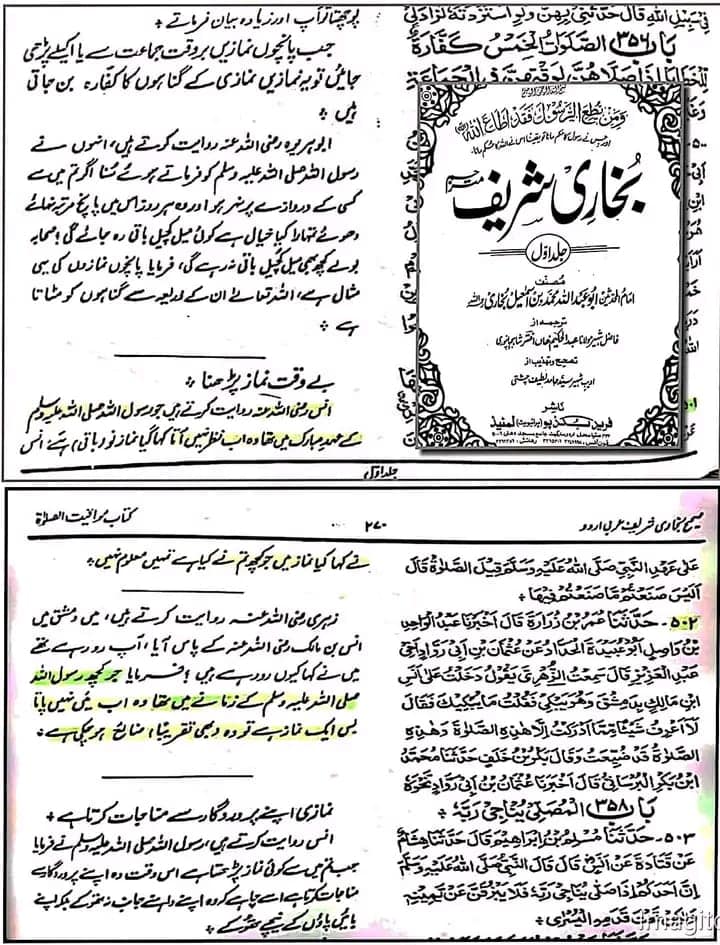 پوچھتا تو آپ اور زیادہ بیان فرماتے ٭
جب پانچوں نمازیں بروقت جماعت سے یا اکیلے پڑھی
جائیں تو یہ نمازیں نمازی کے گناہوں کا کفارہ بن جاتی
ہیں ٭
ابوہریرہ رضی اللہ عنہ روایت کرتے ہیں، انہوں نے
رسول اللہ صلی اللہ علیہ وسلم کو فرماتے ہوئے سنا اگر تم میں سے
کسی کے دروازے پر نہر ہو اور وہ ہر روز اس میں پانچ مرتبہ نہائے
دھوئے تمہارا کیا خیال ہے کوئی میل کچیل باقی رہ جائے گی؟ صحابہ
بولے کچھ بھی میل کچیل باقی نہ رہے گی، فرمایا پانچوں نمازوں کی یہی
مثال ہے، اللہ تعالے ان کے ذریعہ سے گناہوں کو مٹاتا
ہے ٭
بے وقت نماز پڑھنا ٭
انس رضی اللہ عنہ روایت کرتے ہیں جو رسول اللہ صلی اللہ علیہ وسلم
کے عہد مبارک میں تھا وہ اب نظر نہیں آتا کہا گیا نماز تو باقی ہے؛ انس
جلد اول
فِي سَبِيلِ اللهِ قَالَ حَدَّثَنِي بِهِنَّ وَلَوِ اسْتَزَدْتُهُ لَزَادَنِي
بَابُ ۳۵۶ الصَّلَوَاتُ الْخَمْسُ كَفَّارَةٌ
وَمَنْ يُطِعِ الرَّسُوْلَ فَقَدْ اَطَاعَ اللهَ
بُخاری شریف
مترجم
جلد اول
مصنف
امام المحدثین ابو عبد اللہ محمد بن اسمٰعیل بخاری
ترجمہ از
فاضل شہیر مولانا عبد الحکیم خاں اختر شاہجہانپوری
تصحیح و تہذیب از
ادیب شہیر سید حامد لطیف چشتی
ناشر
فرید بکڈپو (پرائیویٹ) لمٹیڈ
صحیح بخاری شریف عربی اردو
۲۷۰
کتاب مواقیت الصلوۃ
نے کہا کیا نماز میں جو کچھ تم نے کیا ہے تمہیں معلوم نہیں ٭
زہری رضی اللہ عنہ روایت کرتے ہیں، میں دمشق میں
انس بن مالک رضی اللہ عنہ کے پاس آیا، آپ رو رہے تھے
میں نے کہا کیوں رو رہے ہیں؟ فرمایا جو کچھ رسول اللہ
صلی اللہ علیہ وسلم کے زمانے میں تھا وہ اب میں نہیں پاتا
بس ایک نماز ہے تو وہ بھی تقریباً ضائع ہو چکی ہے ٭
نمازی اپنے پروردگار سے مناجات کرتا ہے ٭
انس روایت کرتے ہیں، رسول اللہ صلی اللہ علیہ وسلم نے فرمایا
جب تم میں سے کوئی نماز پڑھتا ہے اس وقت وہ اپنے پروردگار سے
مناجات کرتا ہے اسے چاہیے کہ وہ اپنے داہنے جانب نہ تھوکے بلکہ اپنے
بائیں پاؤں کے نیچے تھوکے ٭
عَلَى عَهْدِ النَّبِيِّ صَلَّى اللهُ عَلَيْهِ وَسَلَّمَ قِيلَ الصَّلَاةُ قَالَ
أَلَيْسَ صَنَعْتُمْ مَا صَنَعْتُمْ فِيهَا ٭
۵۰۲- حَدَّثَنَا عَمْرُو بْنُ زُرَارَةَ قَالَ أَخْبَرَنَا عَبْدُ الْوَاحِدِ
بْنُ وَاصِلٍ أَبُو عُبَيْدَةَ الْحَدَّادُ عَنْ عُثْمَانَ بْنِ أَبِي رَوَّادٍ أَخِي
عَبْدِ الْعَزِيزِ قَالَ سَمِعْتُ الزُّهْرِيَّ يَقُولُ دَخَلْتُ عَلَى أَنَسِ
ابْنِ مَالِكٍ بِدِمَشْقَ وَهُوَ يَبْكِي فَقُلْتُ مَا يُبْكِيكَ فَقَالَ
لَا أَعْرِفُ شَيْئًا مِمَّا أَدْرَكْتُ إِلَّا هَذِهِ الصَّلَاةَ وَهَذِهِ
الصَّلَاةُ قَدْ ضُيِّعَتْ وَقَالَ بَكْرُ بْنُ خَلَفٍ حَدَّثَنَا مُحَمَّدُ
ابْنُ بَكْرٍ الْبُرْسَانِيُّ قَالَ أَخْبَرَنَا عُثْمَانُ بْنُ أَبِي رَوَّادٍ نَحْوَهُ
بَابُ ۳۵۸ الْمُصَلِّي يُنَاجِي رَبَّهُ ٭
۵۰۳- حَدَّثَنَا مُسْلِمُ بْنُ إِبْرَاهِيمَ قَالَ حَدَّثَنَا هِشَامٌ
عَنْ قَتَادَةَ عَنْ أَنَسٍ قَالَ قَالَ النَّبِيُّ صَلَّى اللهُ عَلَيْهِ وَسَلَّمَ
إِنَّ أَحَدَكُمْ إِذَا صَلَّى يُنَاجِي رَبَّهُ فَلَا يَبْزُقَنَّ عَنْ يَمِينِهِ
تَحْتَ قَدَمِهِ الْيُسْرَى ٭